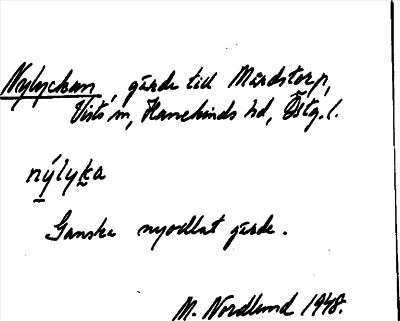 Nylyckan, gärde till Mårdstorp,
Vists sn, Hanekinds hd, Östg. l.
nýlyka
Ganska nyodlat gärde.
M. Nordlund 1948.